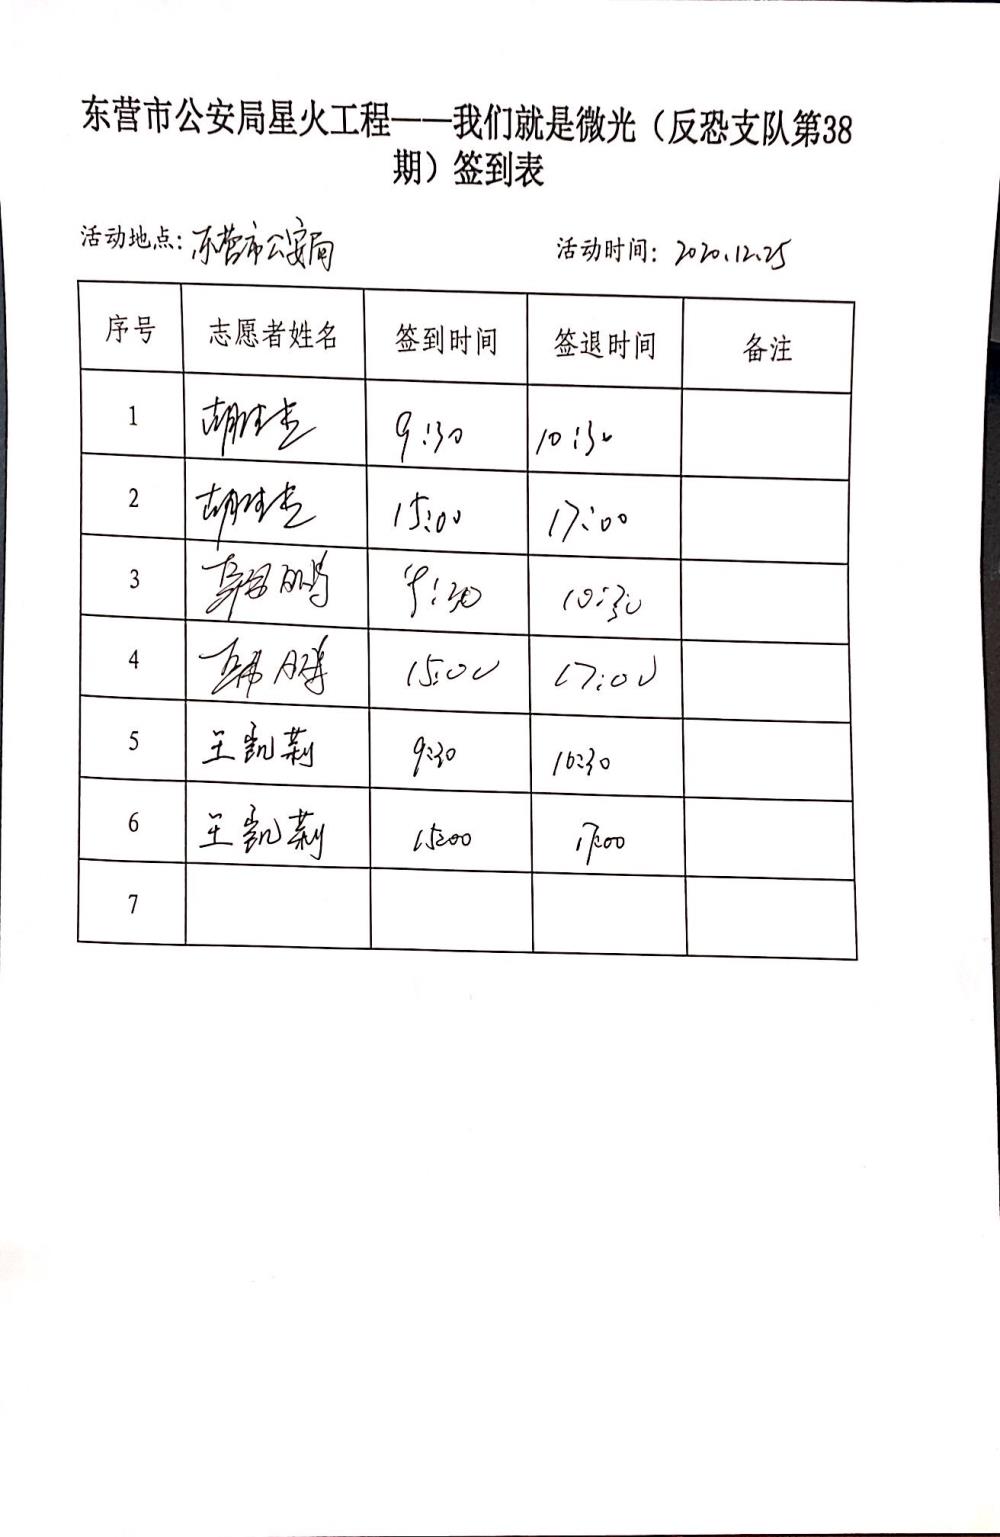 东营市公安局星火工程——我们就是微光（反恐支队第38
期）签到表
活动地点：东营市公安局 活动时间：2020.12.25
序号 志愿者姓名 签到时间 签退时间 备注
1 胡 9:30 10:30
2 胡 15:00 17:00
3 韩鹏 9:30 10:30
4 韩鹏 15:00 17:00
5 王凯莉 9:30 10:30
6 王凯莉 15:00 17:00
7